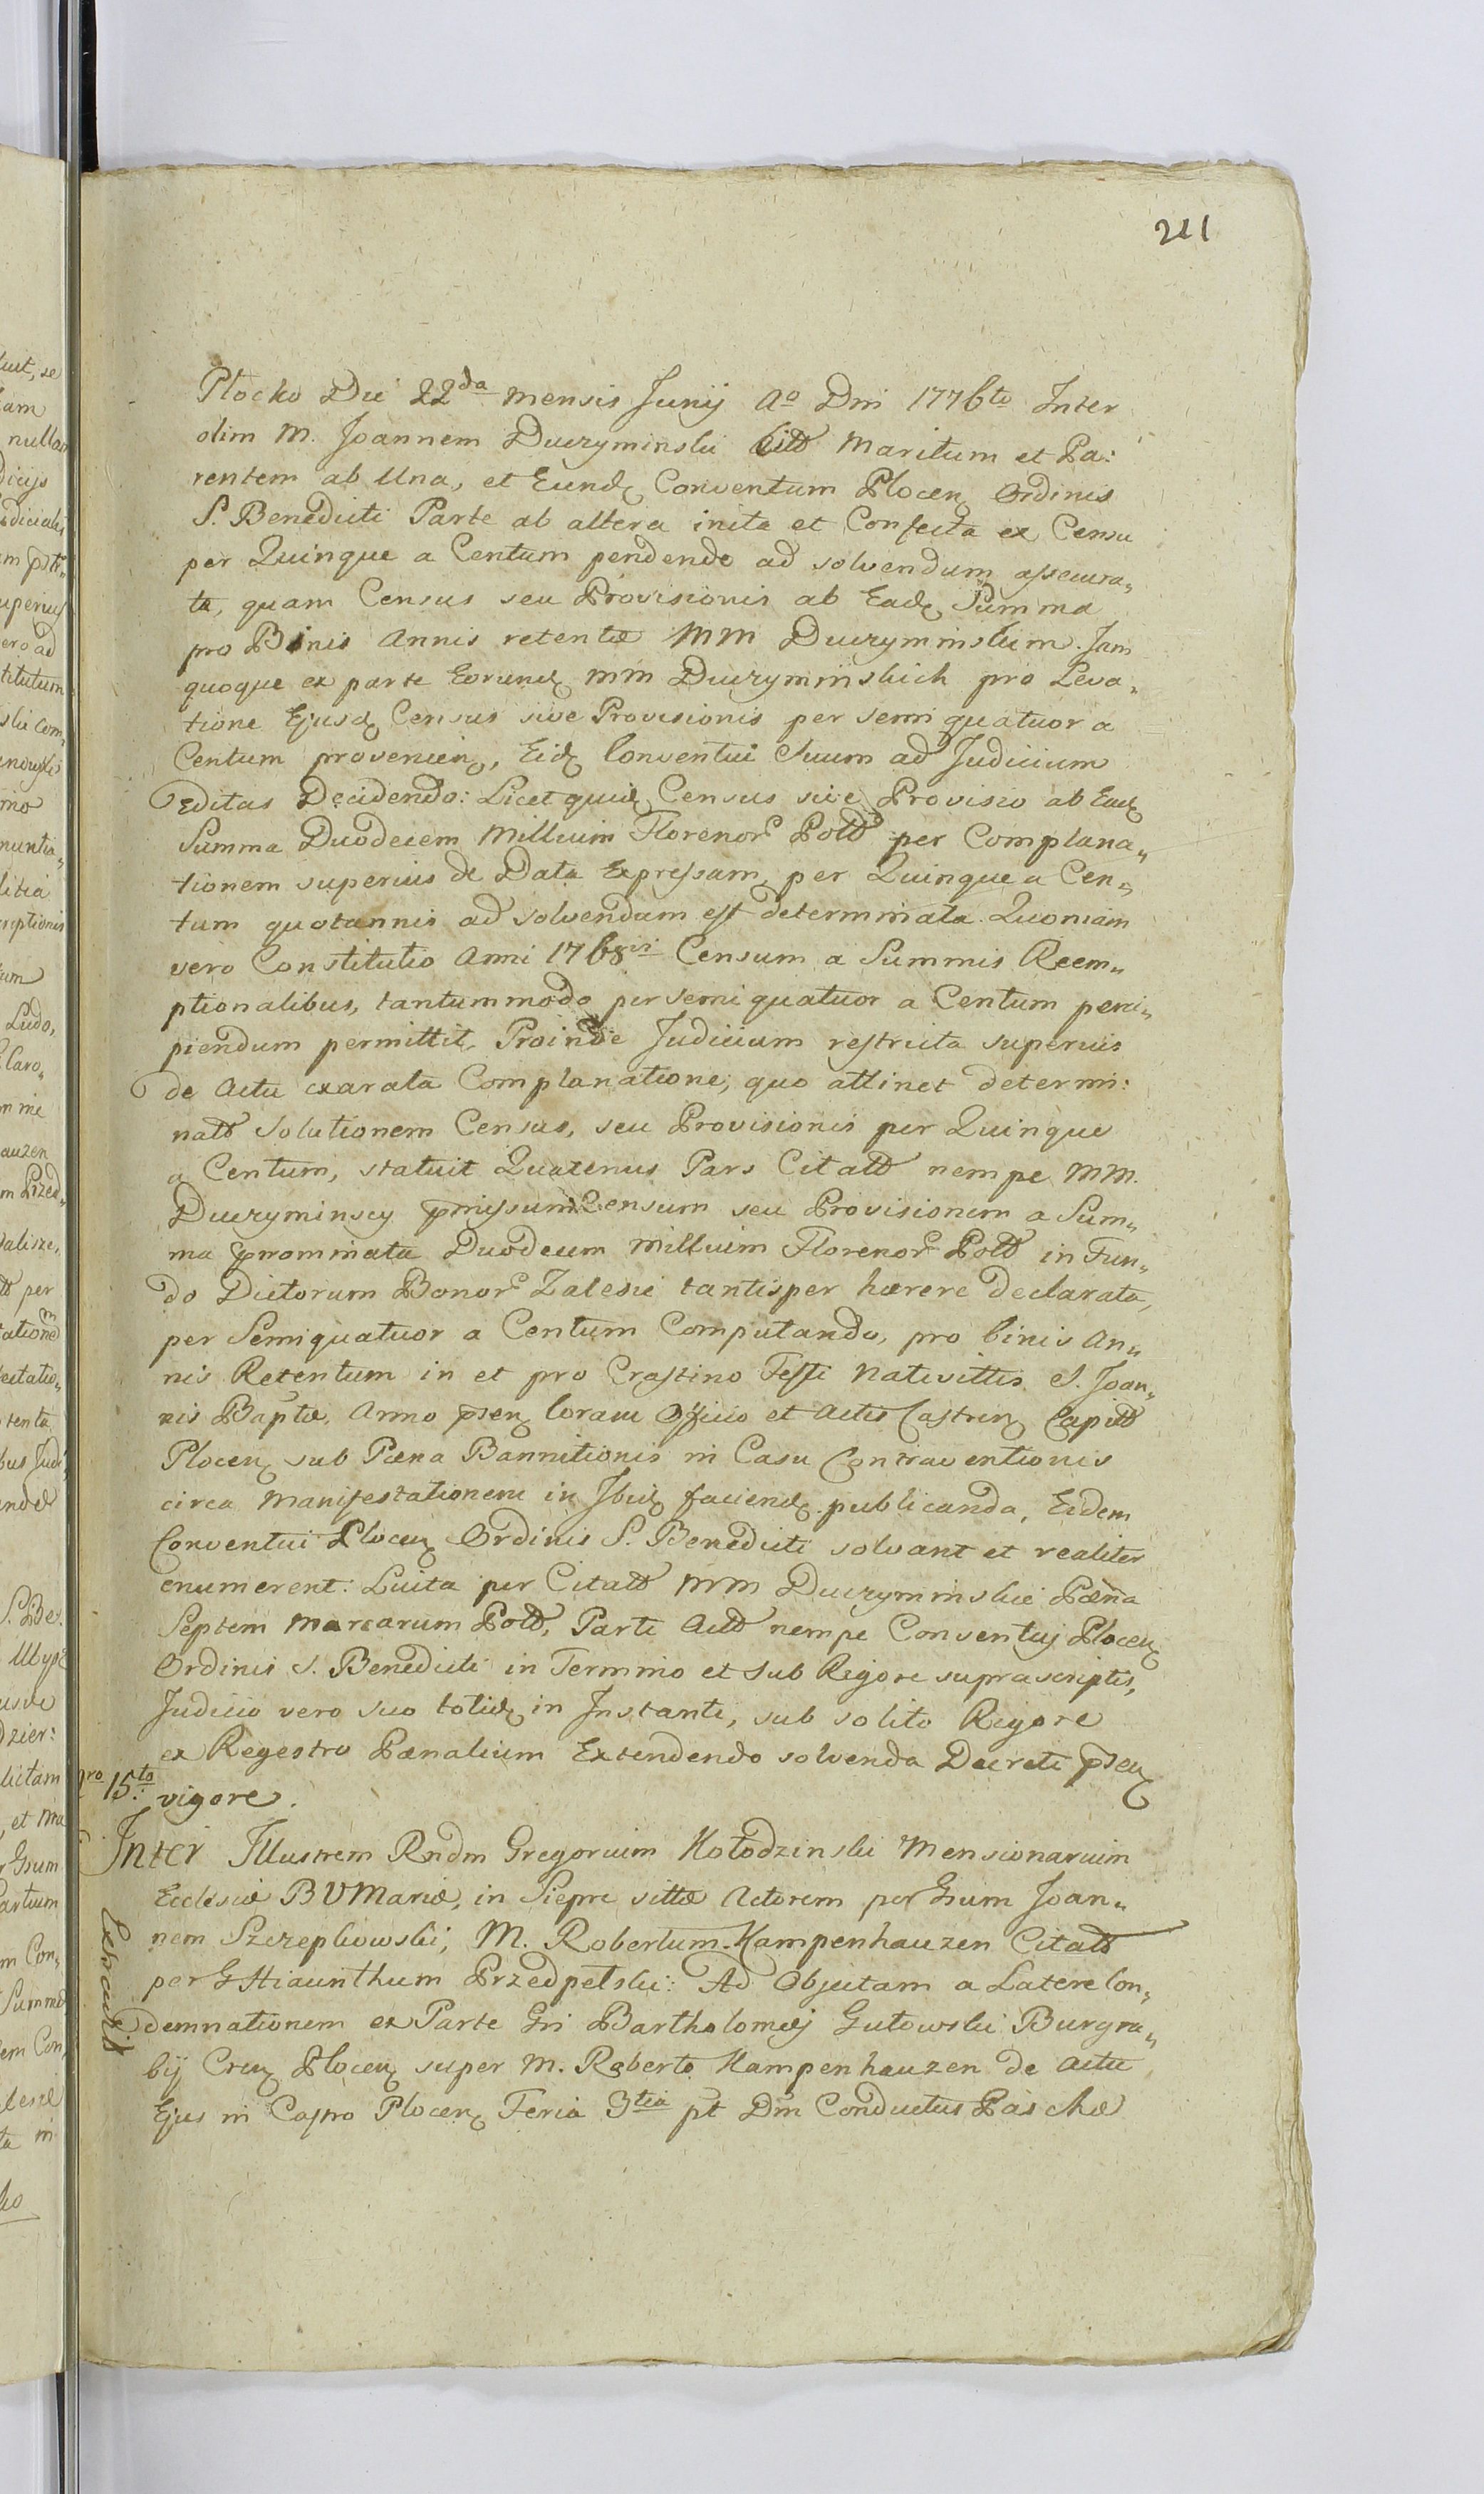 211
Płocko Die 22da Mensis Junij Ao Dni 1776to Inter
olim M. Joannem Duczyminski Citt Maritum et Pa:
rentem ab Una, et Eund Conventum Plocen Ordinis
S. Benedicti Parte ab altera inita et Confecta ex Censu
per Quinque a Centum pendendo ad solvendum assecura„
ta, quam Census seu Provisionis ab Ead Summa
pro Binis Annis retentæ MM Duczyminskim. Jam
quoque ex parte Eorund MM Duczyminskich pro Leva„
tione Ejusd Census sive Provisionis per semi quatuor a
Centum provenien, Eid Conventui Suum ad Judicium
Editas Decidendo: Licet quid Census sive Provisio ab Ead
Summa Duodecem Millium Florenor Poltt per Complana„
tionem superius de Data Expressam, per Quinque a Cen„
tum quotannis ad solvendum est determinata. Quoniam
vero Constitutio Anni 1768vi Censum a Summis Reem„
ptionalibus, tantummodo per semi quatuor a Centum perci„
piendum permittit, Proinde Judicium restricta superius
de Actu exarata Complanatione, quo attinet determi:
natt Solutionem Census, seu Provisionis per Quinque
a Centum, statuit Quatenus Pars Citatt nempe MM.
Duczyminscy pmissum Censum seu Provisionem a Sum„
ma pnominata Duodecim Millium Florenor Poltt in Fun„
do Dictorum Bonor Zalesie tantisper hærere declarata,
per Semiquatuor a Centum Computando, pro binis An„
nis Retentum in et pro Crastino Festi Nativittis S. Joan„
nis Baptæ, Anno psen Coram Officio et Actis Castren Capitt
Plocen sub Pæna Bannitionis in Casu Contraventionis
circa Manifestationem in Ibid faciend publicanda, Eidem
Conventui Plocen Ordinis S. Benedicti solvant et realiter
enumerent: Luita per Citatt MM Duczyminskie Pæna
Septem Marcarum Poltt, Parti Actt nempe Conventuj Plocen
Ordinis S. Benedicti in Termino et sub Rigore suprascriptis,
Judicio vero suo totid in Instanti, sub solito Rigore
ex Regestro Pænalium Extendendo solvenda Decreti psen
vigore.
Nro 15to
Inter Illustrem Rndm Gregorium Kołodzinski Mensionarium
Ecclesiæ BVMariæ, in Sierpc sittæ Actorem per Gsum Joan„
nem Szczepkowski, M. Robertum Kampenhauzen Citatt
per G Hiacinthum Przedpełski: Ad Objectam a Latere Con„
demnationem ex Parte Gsi Bartholomæj Gutowski Burgra„
bij Cren Plocen super M. Roberto Kampenhauzen de Actu
Ejus in Castro Plocen Feria 3tia pt Dm Conductus Paschæ